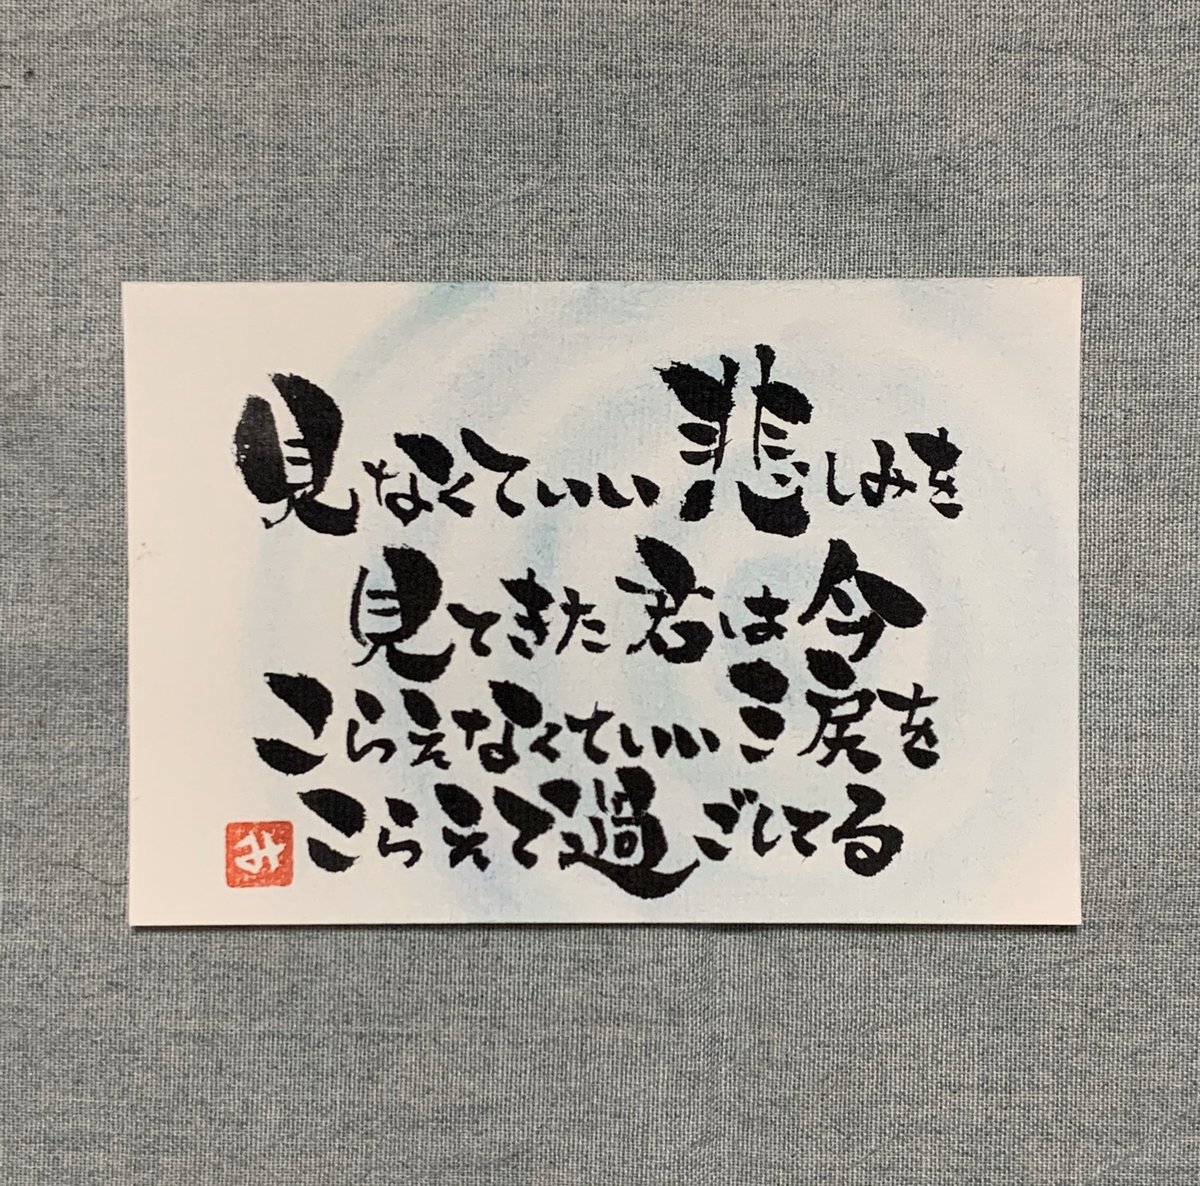 見なくていい悲しみを
見てきた君は今
こらえなくていい涙を
こらえて過ごしてる
み